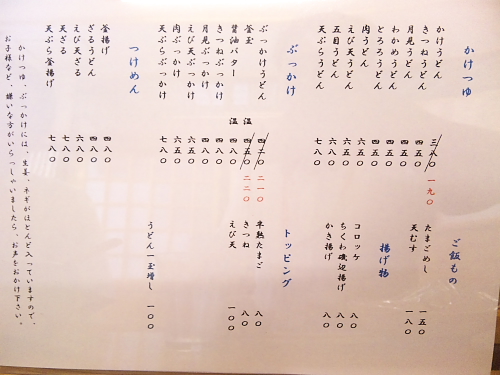 かけつゆ
かけうどん 三八〇 一九〇
きつねうどん 四五〇
月見うどん 四五〇
わかめうどん 四五〇
とろろうどん 四五〇
肉うどん 六五〇
えび天うどん 六五〇
五目うどん 六八〇
天ぷらうどん 七八〇
ぶっかけ
ぶっかけうどん 四二〇 二一〇
釜玉 温 四五〇 二二〇
醤油バター 温 四八〇
きつねぶっかけ 四八〇
月見ぶっかけ 四八〇
えび天ぶっかけ 六五〇
肉ぶっかけ 六五〇
天ぷらぶっかけ 七八〇
つけめん
釜揚げ 四八〇
ざるうどん 四八〇
えび天ざる 六八〇
天ざる 七八〇
天ぷら釜揚げ 七八〇
ご飯もの
たまごめし 一五〇
天むす 一八〇
揚げ物
コロッケ 八〇
ちくわ磯辺揚げ 八〇
かき揚げ 八〇
トッピング
半熟たまご 八〇
きつね 八〇
えび天 一〇〇
うどん一玉増し 一〇〇
かけつゆ、ぶっかけには、生姜、ネギがほとんど入っていますので、
お子様など、嫌いな方がいらっしゃいましたら、お声をおかけ下さい。